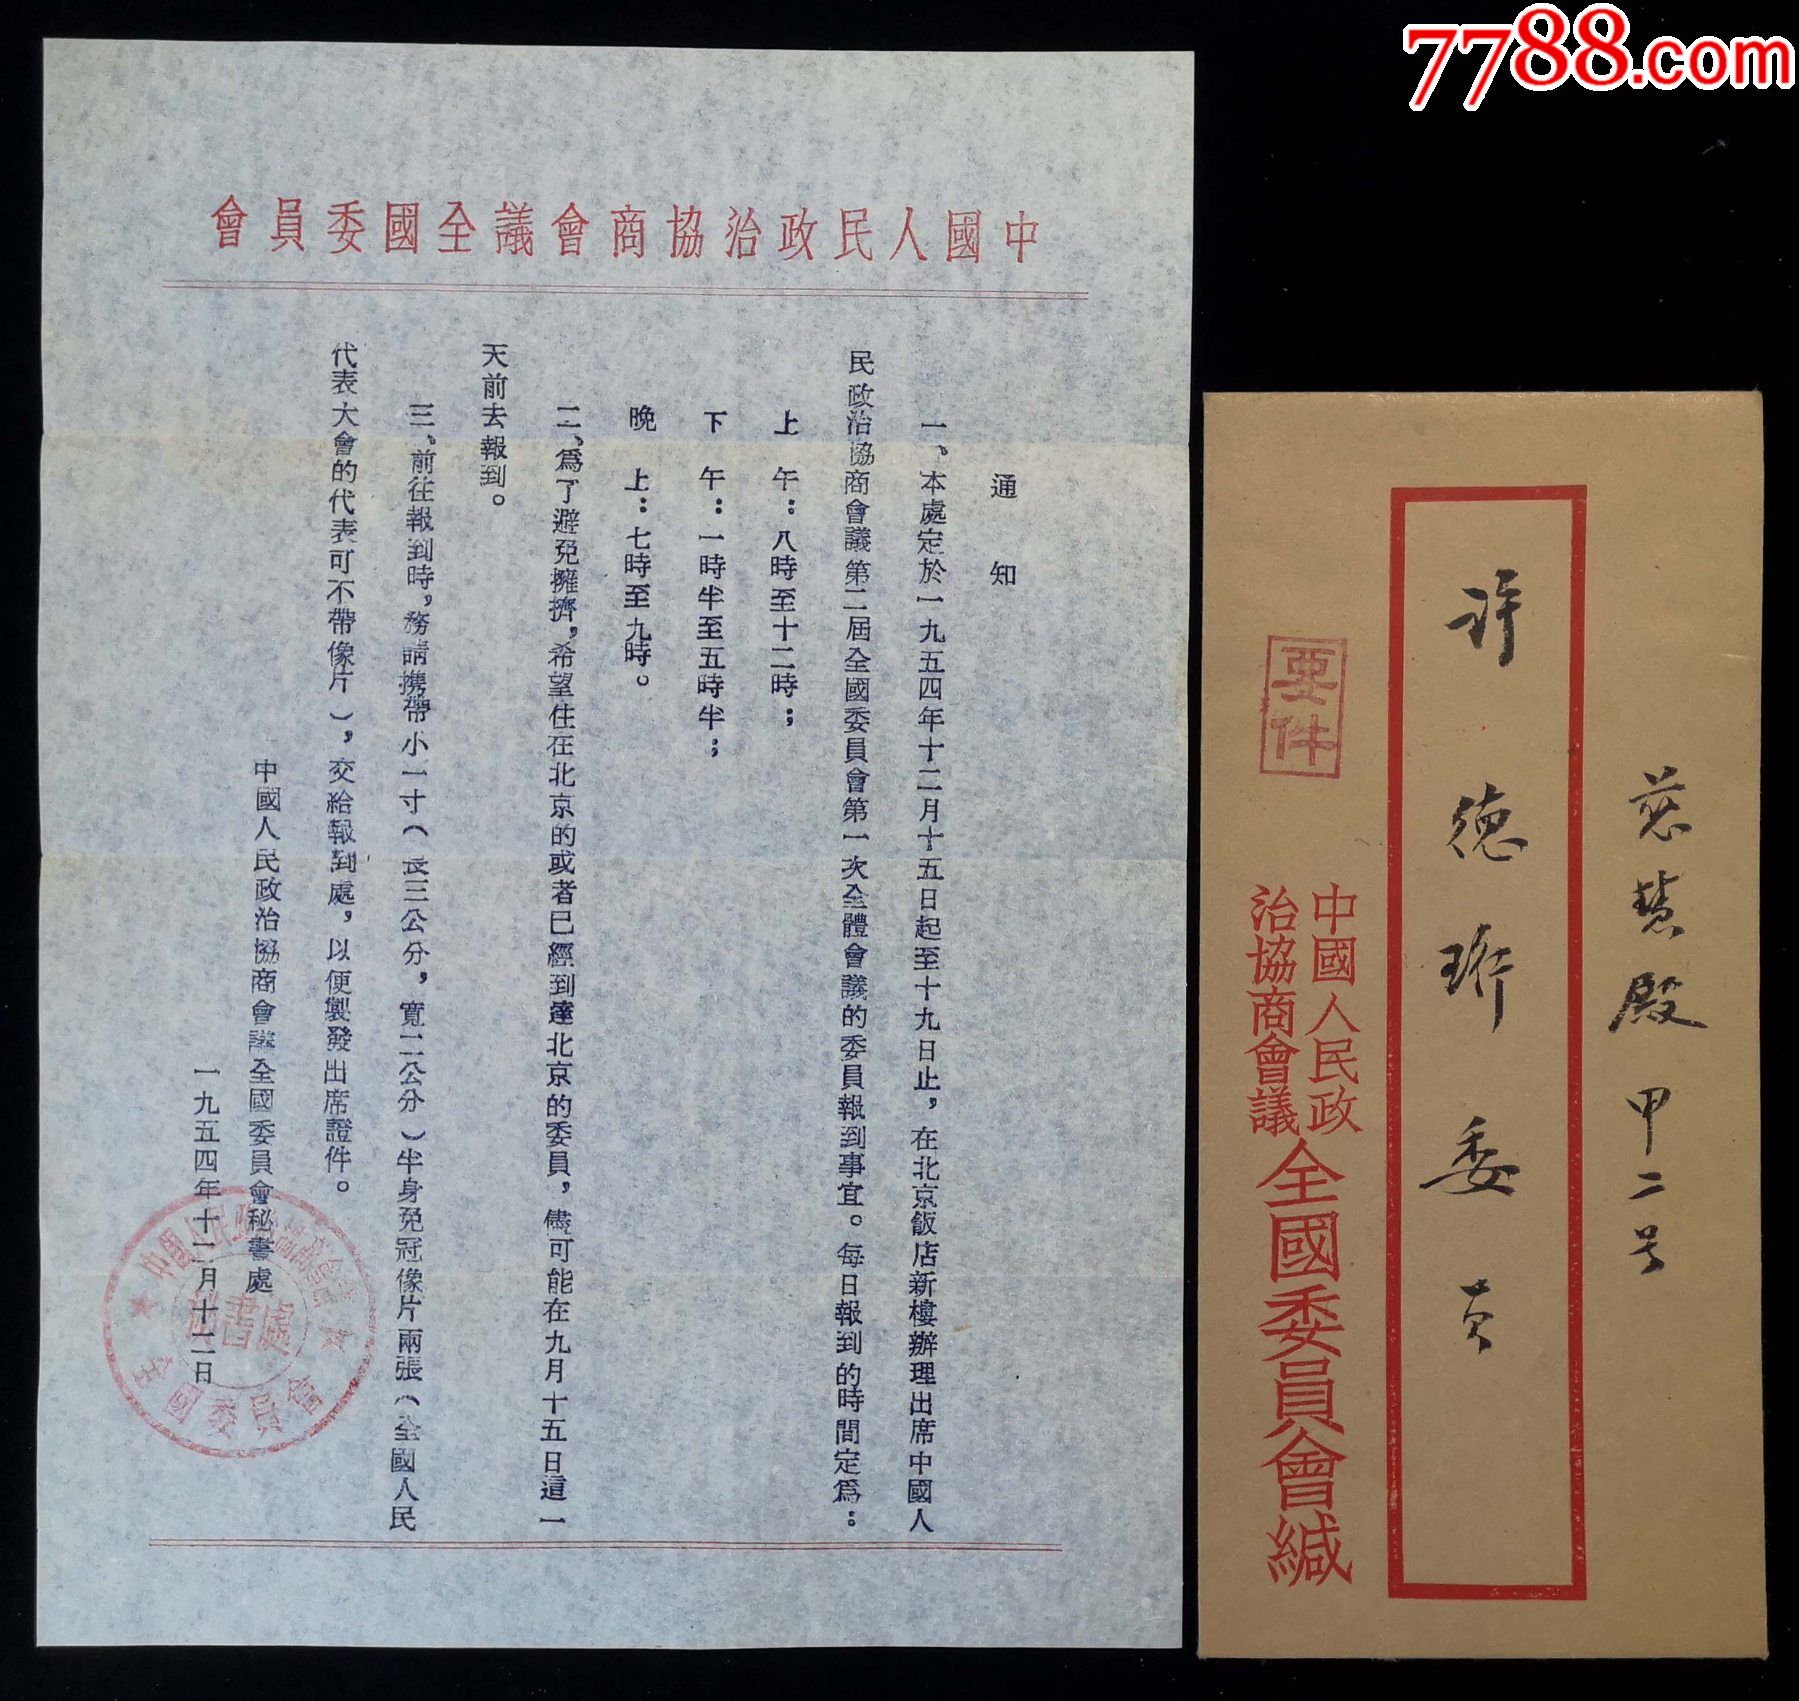 7788.com
中國人民政治協商會議全國委員會
通知
一、本處定於一九五四年十二月十五日起至十九日止，在北京飯店新樓辦理出席中國人
民政治協商會議第二屆全國委員會第一次全體會議的委員報到事宜。每日報到的時間定爲：
上午：八時至十二時；
下午：一時半至五時半；
晚上：七時至九時。
二、爲了避免擁擠，希望住在北京的或者已經到達北京的委員，儘可能在九月十五日這一
天前去報到。
三、前往報到時，務請携帶小一寸（長三公分，寬二公分）半身免冠像片兩張（全國人民
代表大會的代表可不帶像片），交給報到處，以便製發出席證件。
中國人民政治協商會議全國委員會秘書處
一九五四年十二月十二日
中國人民政治協商會議
秘書處
全國委員會
慈慧殿甲二号
許德珩委員
要件
中國人民政
治協商會議
全國委員會緘